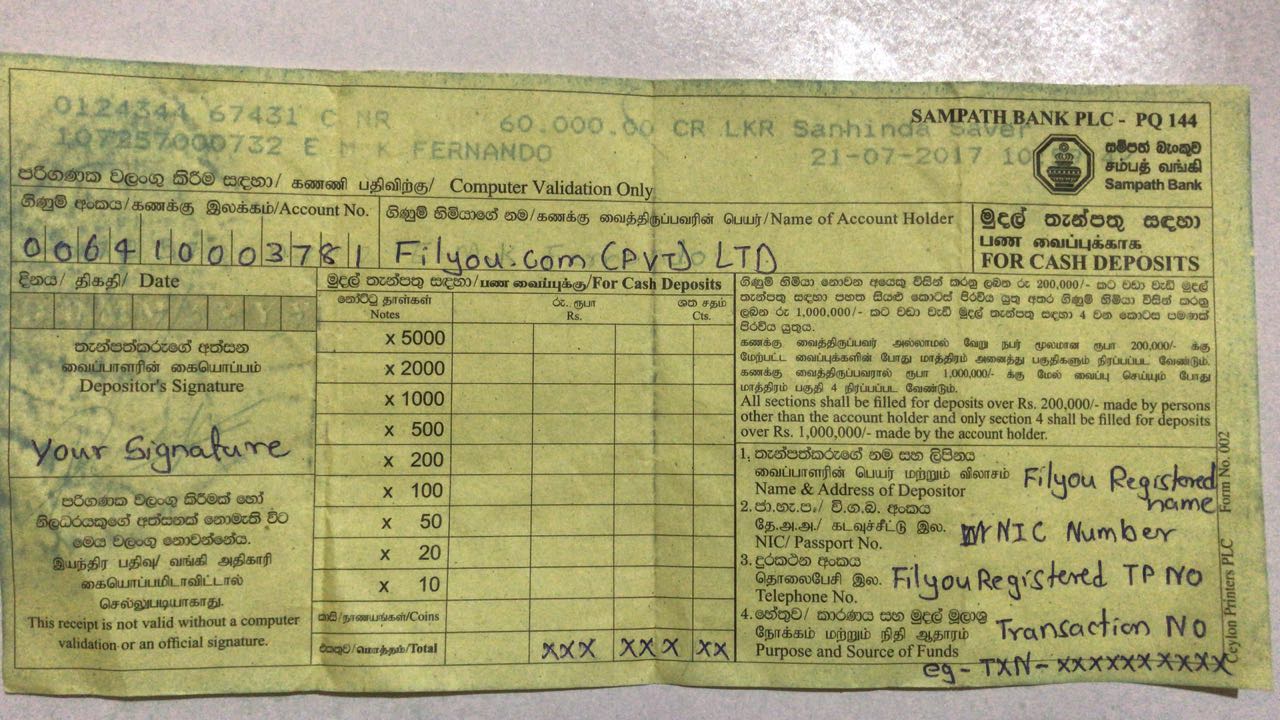 0124344 67431 C NR 60.000.00 CR LKR Sanhinda Saver
107257000732 E M K FERNANDO 21-07-2017 10
SAMPATH BANK PLC - PQ 144
සම්පත් බැංකුව
சம்பத் வங்கி
Sampath Bank
පරිගණක වලංගු කිරීම සඳහා/ கணணி பதிவிற்கு/ Computer Validation Only
ගිණුම් අංකය/கணக்கு இலக்கம்/Account No.
006410003781
ගිණුම් හිමියාගේ නම/கணக்கு வைத்திருப்பவரின் பெயர்/Name of Account Holder
Filyou.com (PVT) LTD
මුදල් තැන්පතු සඳහා
பண வைப்புக்காக
FOR CASH DEPOSITS
දිනය/ திகதி/ Date
තැන්පත්කරුගේ අත්සන
வைப்பாளரின் கையொப்பம்
Depositor's Signature
Your Signature
පරිගණක වලංගු කිරීමක් හෝ
නිලධරයකුගේ අත්සනක් නොමැති විට
මෙය වලංගු නොවන්නේය.
இயந்திர பதிவு/ வங்கி அதிகாரி
கையொப்பமிடாவிட்டால்
செல்லுபடியாகாது.
This receipt is not valid without a computer
validation or an official signature.
මුදල් තැන්පතු සඳහා/பண வைப்புக்கு/For Cash Deposits
නෝට්ටු தாள்கள் රු. ரூபா ශත சதம்
Notes Rs. Cts.
x 5000
x 2000
x 1000
x 500
x 200
x 100
x 50
x 20
x 10
කාසි/நாணயங்கள்/Coins
එකතුව/மொத்தம்/Total xxx xxx xx
ගිණුම් හිමියා නොවන අයෙකු විසින් කරනු ලබන රු 200,000/- කට වඩා වැඩි මුදල්
තැන්පතු සඳහා පහත සියළු කොටස් පිරවිය යුතු අතර ගිණුම් හිමියා විසින් කරනු
ලබන රු 1,000,000/- කට වඩා වැඩි මුදල් තැන්පතු සඳහා 4 වන කොටස පමණක්
පිරවිය යුතුය.
கணக்கு வைத்திருப்பவர் அல்லாமல் வேறு நபர் மூலமான ரூபா 200,000/- க்கு
மேற்பட்ட வைப்புக்களின் போது மாத்திரம் அனைத்து பகுதிகளும் நிரப்பப்பட வேண்டும்.
கணக்கு வைத்திருப்பவரால் ரூபா 1,000,000/- க்கு மேல் வைப்பு செய்யும் போது
மாத்திரம் பகுதி 4 நிரப்பப்பட வேண்டும்.
All sections shall be filled for deposits over Rs. 200,000/- made by persons
other than the account holder and only section 4 shall be filled for deposits
over Rs. 1,000,000/- made by the account holder.
1. තැන්පත්කරුගේ නම සහ ලිපිනය
வைப்பாளரின் பெயர் மற்றும் விலாசம்
Name & Address of Depositor
Filyou Registered
name
2. ජා.හැ.ප./ වි.ග.බ. අංකය
தே.அ.அ./ கடவுச்சீட்டு இல.
NIC/ Passport No.
NIC Number
3. දුරකථන අංකය
தொலைபேசி இல.
Telephone No.
Filyou Registered TP NO
4. හේතුව/ කාරණය සහ මුදල් මූලාශ්‍ර
நோக்கம் மற்றும் நிதி ஆதாரம்
Purpose and Source of Funds
Transaction NO
eg - TXN - xxxxxxxxxx
Ceylon Printers PLC Form No. 002